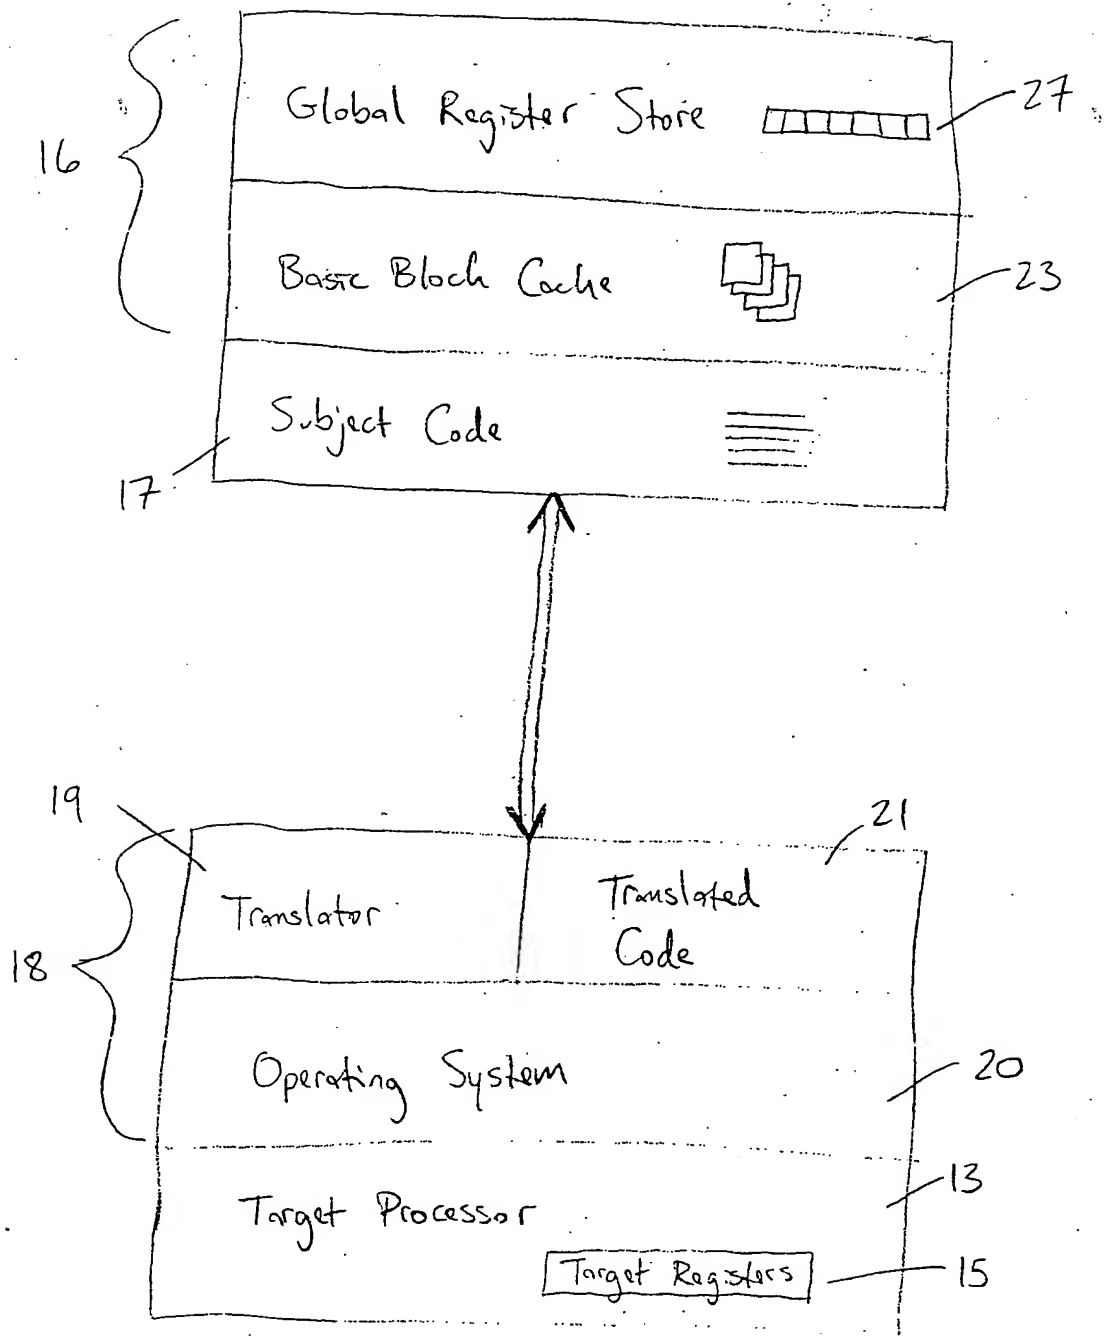 Global Register Store
27
16
Basic Block Cache
23
Subject Code
17
19
21
Translator
Translated
Code
18
Operating System
20
Target Processor
13
Target Registers
15